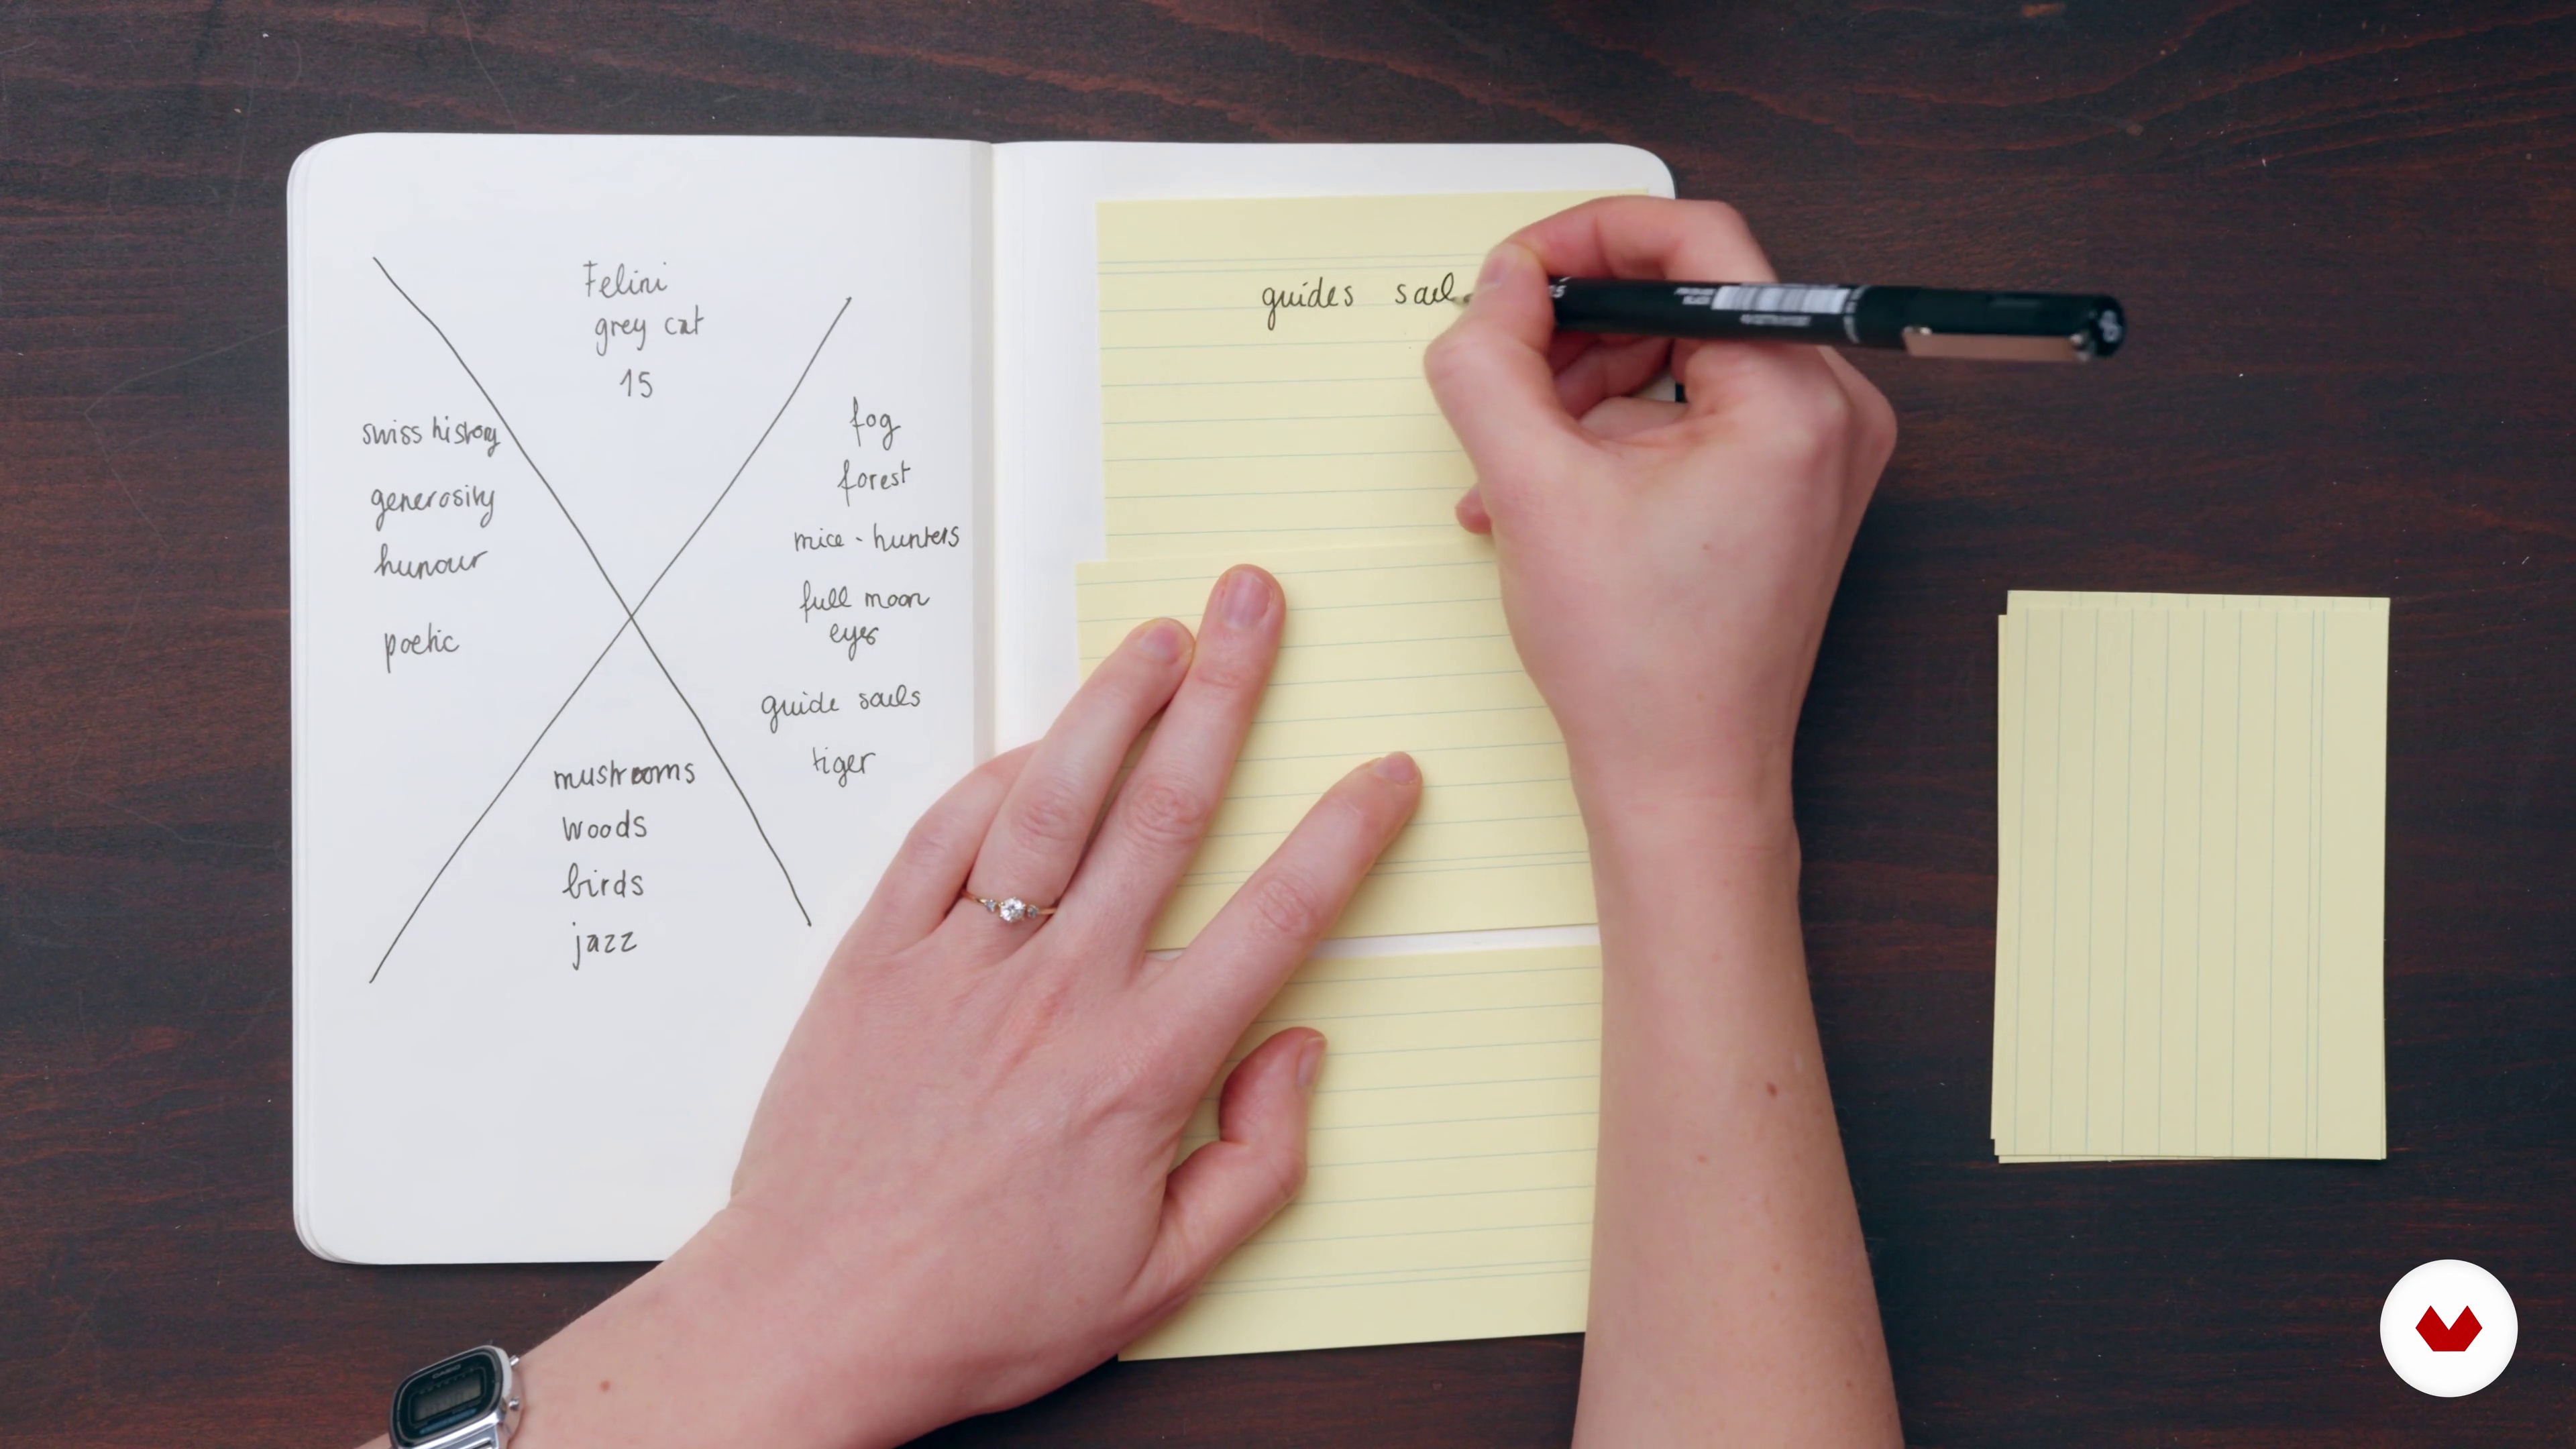 Felini
grey cat
15
swiss history
generosity
hunour
poetic
fog
forest
mice - hunters
full moon
eyes
guide sails
tiger
mushrooms
woods
birds
jazz
guides sail
CASIO